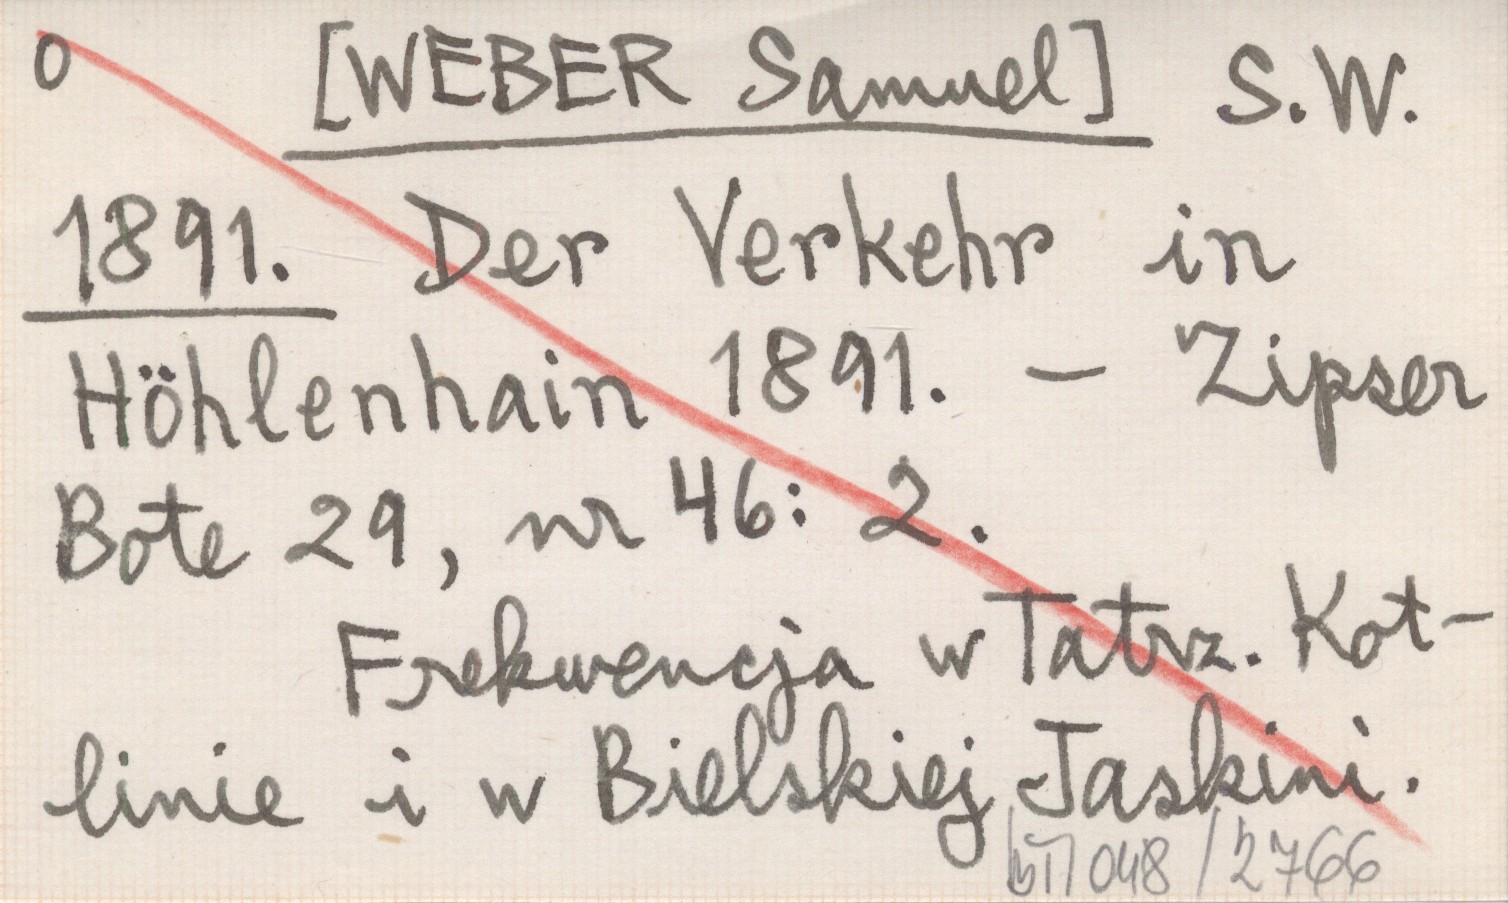 o [WEBER Samuel] S.W.
1891. Der Verkehr in
Höhlenhain 1891. – Zipser
Bote 29, nr 46: 2.
Frekwencja w Tatrz. Kot-
linie i w Bielskiej Jaskini.
048/2766